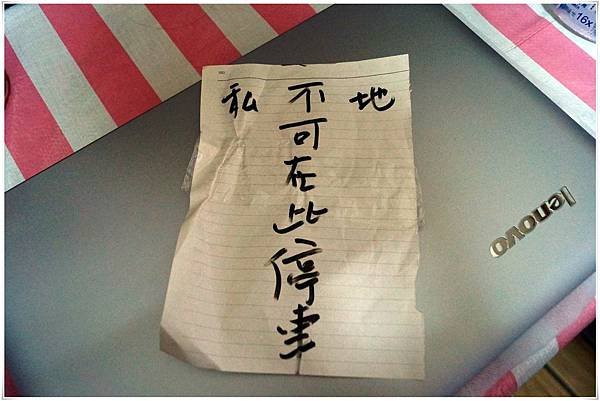 私地
不可在此停車
lenovo
16x